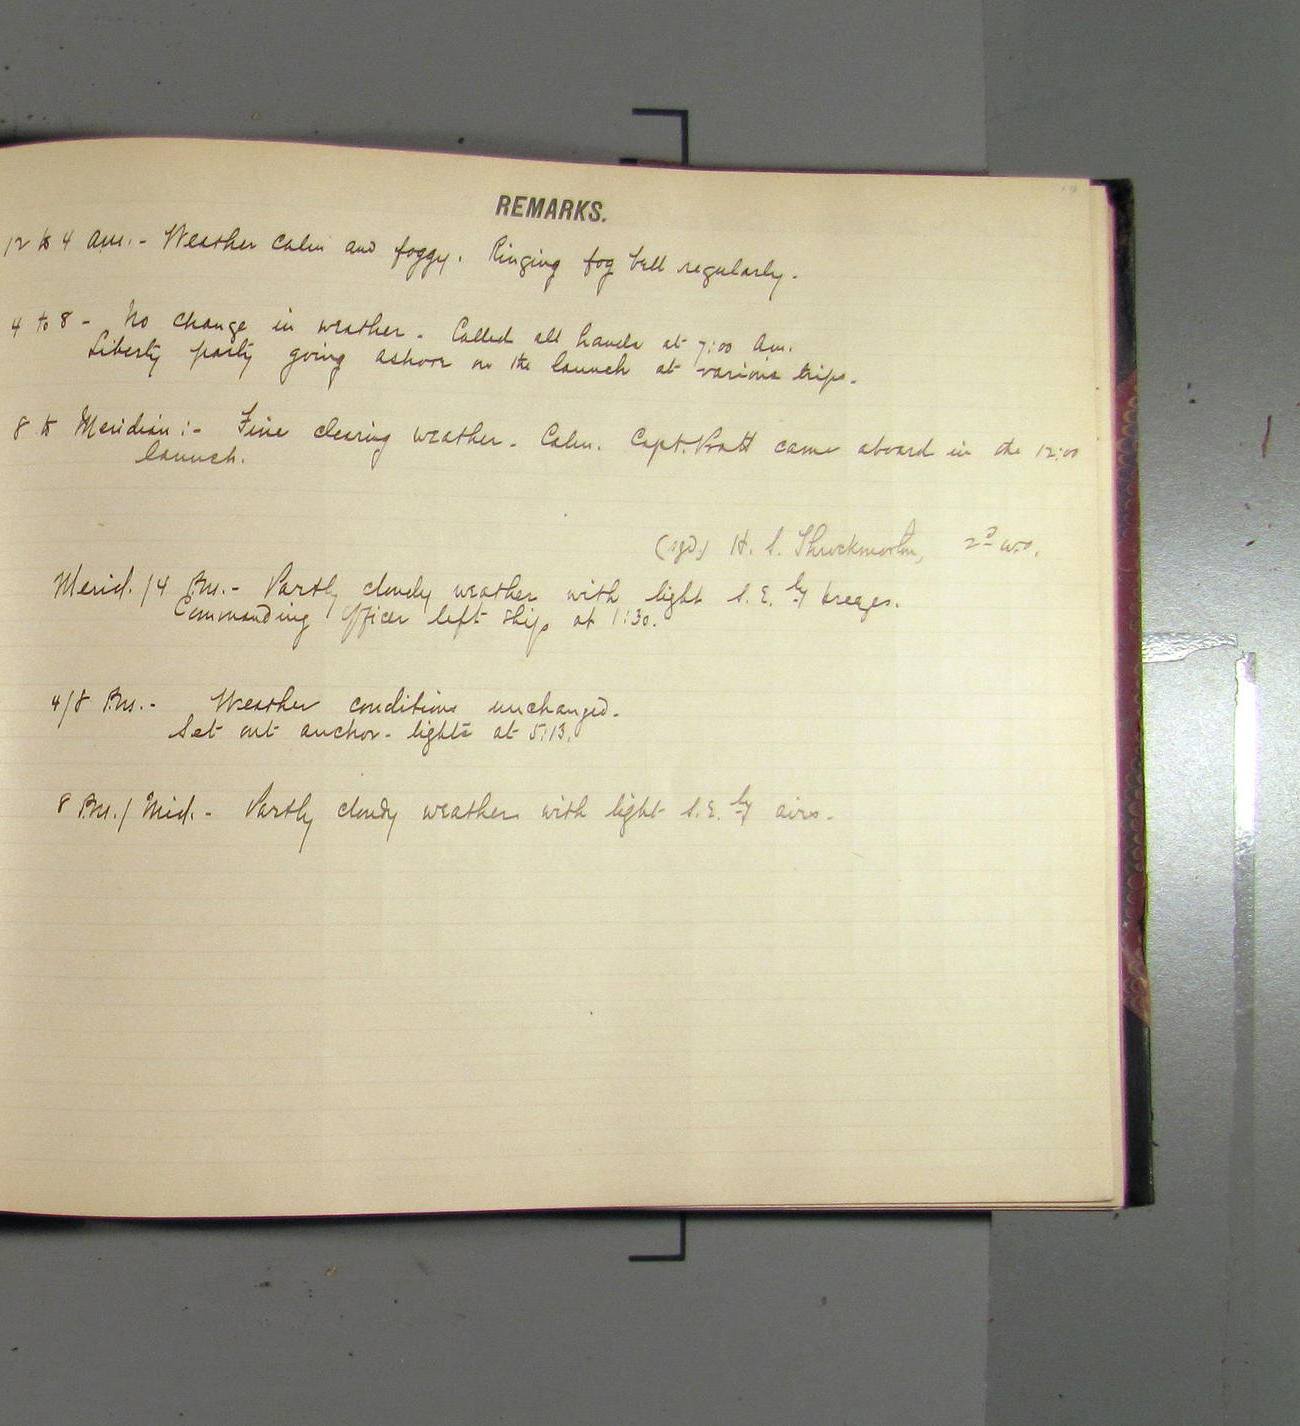 REMARKS.
12 to 4 am.- Weather calm and foggy. Ringing fog bell regularly.
4 to 8 - No change in weather. Called all hands at 7:00 am.
Liberty party going ashore in the launch at various trips.
8 to Meridian:- Fine clearing weather. Calm. Capt. Pratt came aboard in the 12:00
launch.
(sgd.) H. S. Throckmorton, 2d w.o.
Merid./4 Pm.- Partly cloudy weather with light S.E.'ly breezes.
Commanding Officer left ship at 1:30.
4/8 Pm.- Weather conditions unchanged.
Set out anchor-lights at 5:13.
8 Pm./Mid.- Partly cloudy weather with light S.E.'ly airs.